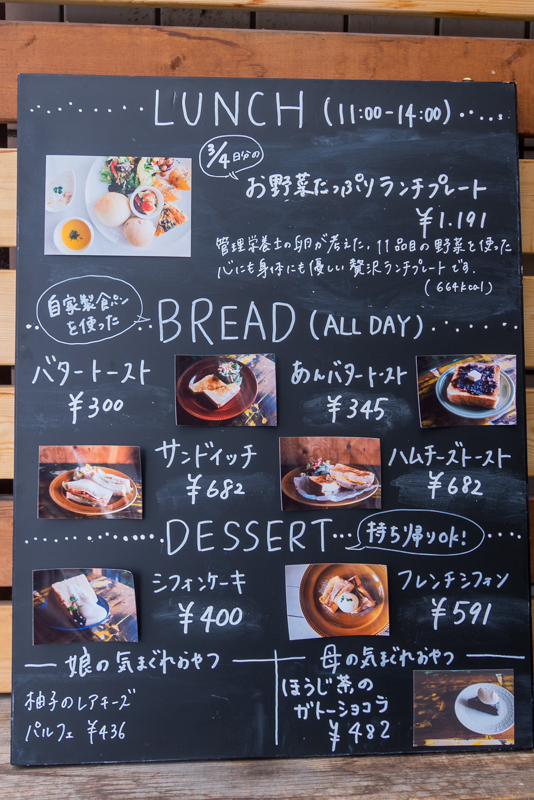 LUNCH (11:00-14:00)
3/4日分の
お野菜たっぷりランチプレート
¥1.191
管理栄養士の卵が考えた、11品目の野菜を使った
心にも身体にも優しい贅沢ランチプレートです.
(664kcal)
自家製食パン
を使った
BREAD (ALL DAY)
バタートースト
¥300
あんバタートースト
¥345
サンドイッチ
¥682
ハムチーズトースト
¥682
DESSERT
持ち帰りok!
シフォンケーキ
¥400
フレンチシフォン
¥591
娘の気まぐれおやつ
柚子のレアチーズ
パルフェ ¥436
母の気まぐれおやつ
ほうじ茶の
ガトーショコラ
¥482